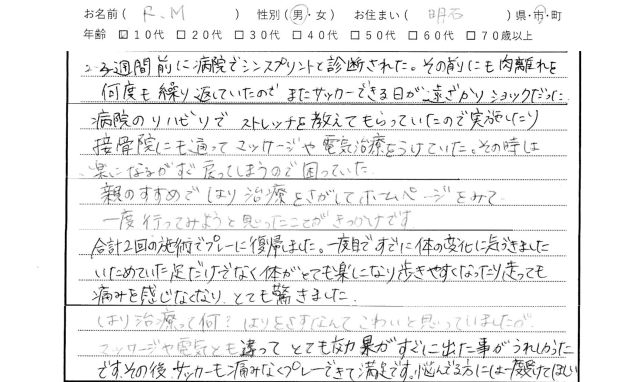 お名前( R.M ) 性別(男・女) お住まい( 明石 )県・市・町
年齢 ☑10代 □20代 □30代 □40代 □50代 □60代 □70歳以上
2〜3週間前に病院でシンスプリントと診断された。その前にも肉離れを
何度も繰り返していたので またサッカーできる日が遠ざかり ショックだった
病院のリハビリで ストレッチを教えてもらっていたので実施したり
接骨院にも通ってマッサージや電気治療をうけていた。その時は
楽になるがすぐ戻ってしまうので困っていた
親のすすめで はり治療をさがしてホームページをみて
一度行ってみようと思ったことがきっかけです
合計2回の施術でプレーに復帰しました。一度目ですぐに体の変化に気づきました
いためていた足だけでなく体がとても楽になり歩きやすくなったり走っても
痛みを感じなくなり とても驚きました
はり治療って何? はりをさすなんてこわいと思っていましたが
マッサージや電気とも違って とても効果がすぐに出た事がうれしかった
です。その後、サッカーも痛みなくプレーできて満足です。悩んでる方には一度受けてほしい